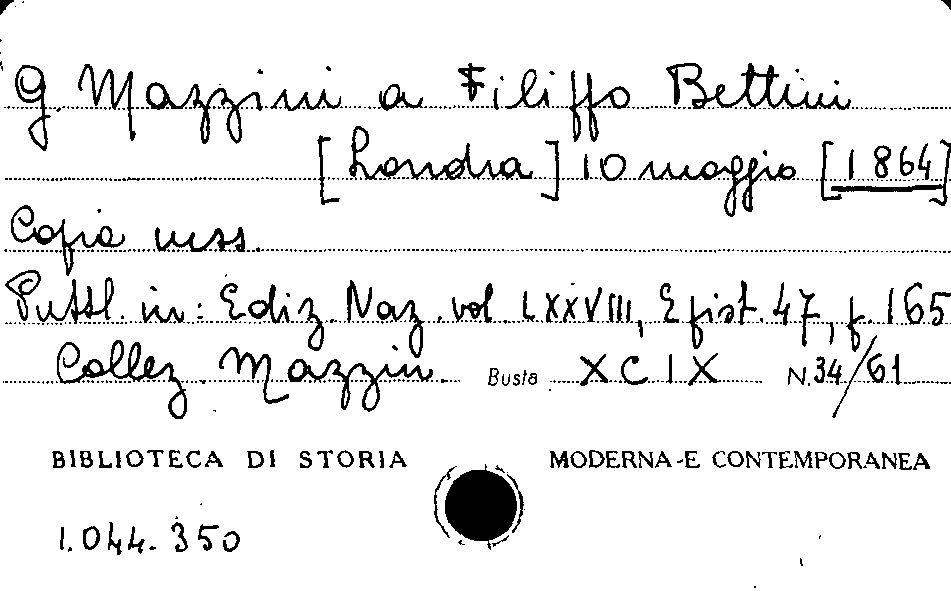 G. Mazzini a Filippo Bettini
[Londra] 10 maggio [1864]
Copia mss.
Pubbl. in: Ediz. Naz. vol LXXVIII, Epist. 47, p. 165
Collez. Mazzin. Busta XCIX N. 34/61
BIBLIOTECA DI STORIA MODERNA E CONTEMPORANEA
1.044.350